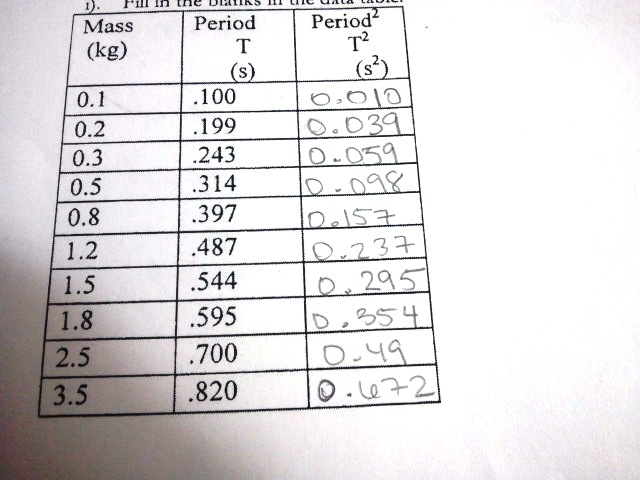 1). Fill in the blanks in the data table.
Mass (kg) Period T (s) Period² T² (s²)
0.1 .100 0.010
0.2 .199 0.039
0.3 .243 0.059
0.5 .314 0.098
0.8 .397 0.157
1.2 .487 0.237
1.5 .544 0.295
1.8 .595 0.354
2.5 .700 0.49
3.5 .820 0.672